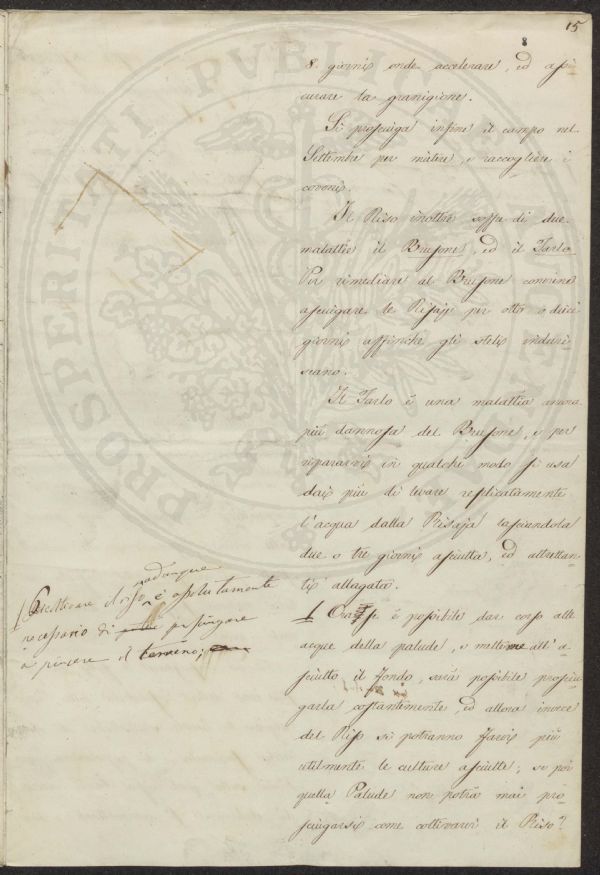 15
8
8. giorni onde accelerare, ed assi-
curare la granigione.
Si prosciuga infine il campo nel
Settembre per mietere, e raccogliere i
covoni.
Il Riso inoltre soffre di due
malattie il Brusone, ed il Tarlo
Per rimediare al Brusone conviene
asciugare le Risaje per otto o dieci
giorni affinchè gli steli induri-
scano.
Il Tarlo è una malattia ancora
più dannosa del Brusone, e per
ripararvi in qualche modo si usa
dai più di levare replicatamente
l'acqua dalla Risaja lasciandola
due o tre giorni asciutta, ed altrettan-
ti allagata.
Ora se è possibile dar corso alle
acque della palude, e metterne all'a-
sciutto il fondo, sarà possibile prosciu-
garla costantemente, ed allora invece
del Riso si potranno farvi più
utilmente le culture asciutte; se poi
quella Palude non potrà mai pro-
sciugarsi come coltivarvi il Riso?
adunque
Coltivare il riso è assolutamente
necessario di prosciugare
a piacere il terreno;
PROSPERITATI PVBLICAE